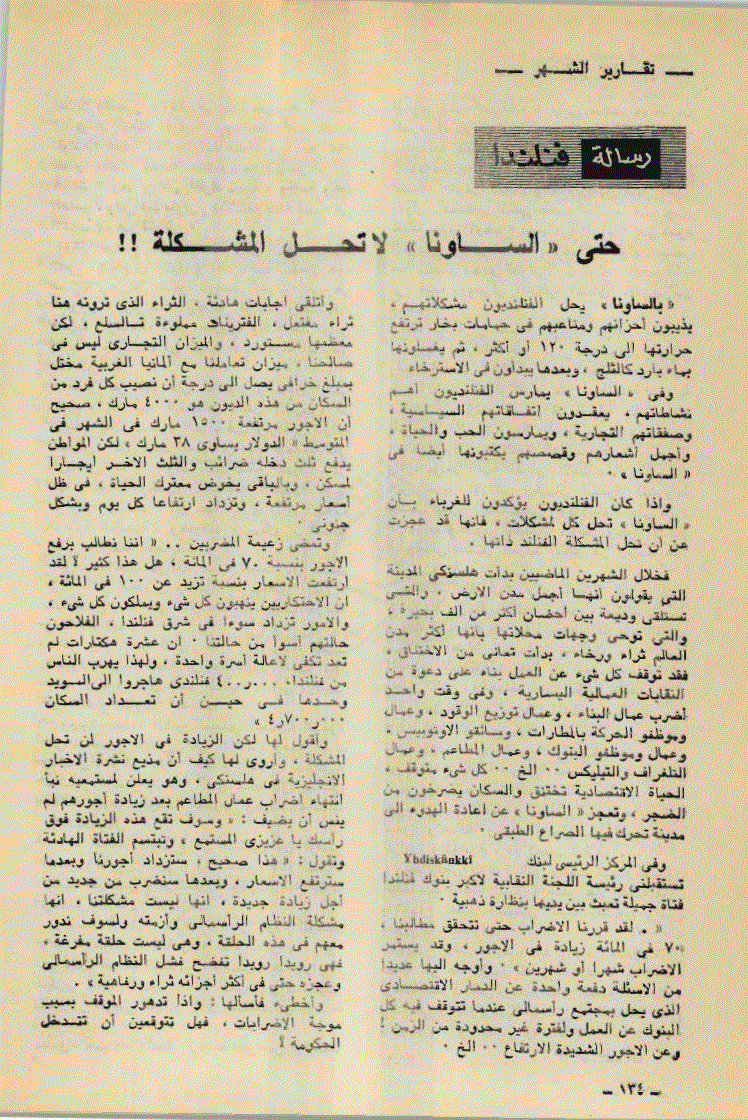 تقـارير الشـهر
رسالة فنلندا
حتى « الساونا » لا تحل المشكلة !!
« بالساونا » يحل الفنلنديون مشكلاتهم ،
يذيبون أحزانهم ومتاعبهم فى حمامات بخار ترتفع
حرارتها الى درجة ١٢٠ أو أكثر ، ثم يغسلونها
بماء بارد كالثلج ، وبعدها يبدأون فى الاسترخاء .
وفى « الساونا » يمارس الفنلنديون أهم
نشاطاتهم ، يعقدون اتفاقاتهم السياسية ،
وصفقاتهم التجارية ، ويمارسون الحب والحياة ،
وأجمل أشعارهم وقصصهم يكتبونها أيضا فى
« الساونا » .
واذا كان الفنلنديون يؤكدون للغرباء بأن
« الساونا » تحل كل المشكلات ، فانها قد عجزت
عن أن تحل المشكلة الفنلندية ذاتها .
فخلال الشهرين الماضيين بدأت هلسنكى المدينة
التى يقولون انها أجمل مدن الارض . والتى
تستلقى وديعة بين أحضان أكثر من ألف بحيرة ،
والتى توحى وجهات محلاتها بأنها أكثر مدن
العالم ثراء ورخاء ، بدأت تعانى من الاختناق ،
فقد توقف كل شىء عن العمل بناء على دعوة من
النقابات العمالية اليسارية ، وفى وقت واحد
أضرب عمال البناء ، وعمال توزيع الوقود ، وعمال
وموظفو الحركة بالمطارات ، وسائقو الاوتوبيس ،
وعمال وموظفو البنوك ، وعمال المطاعم ، وعمال
التلغراف والتيليكس .. الخ .. كل شىء متوقف ،
الحياة الاقتصادية تختنق والسكان يصرخون من
الضجر ، وتعجز « الساونا » عن اعادة الهدوء الى
مدينة تحرك فيها الصراع الطبقى .
وفى المركز الرئيسى لبنك Yhdiskänkki
تستقبلنى رئيسة اللجنة النقابية لاكبر بنوك فنلندا
فتاة جميلة تعبث بين يديها بنظارة ذهبية .
« . لقد قررنا الاضراب حتى تتحقق مطالبنا ،
٧٠ فى المائة زيادة فى الاجور ، وقد يستمر
الاضراب شهرا أو شهرين » . وأوجه اليها عديدا
من الاسئلة دفعة واحدة عن الدمار الاقتصادى
الذى يحل بمجتمع رأسمالى عندما تتوقف فيه كل
البنوك عن العمل ولفترة غير محدودة من الزمن !
وعن الاجور الشديدة الارتفاع .. الخ .
وأتلقى اجابات هادئة ، الثراء الذى ترونه هنا
ثراء مفتعل ، الفترينات مملوءة بالسلع ، لكن
معظمها مستورد ، والميزان التجارى ليس فى
صالحنا ، ميزان تعاملنا مع ألمانيا الغربية مختل
بمبلغ خرافى يصل الى درجة أن نصيب كل فرد من
السكان من هذه الديون هو ٤٠٠٠ مارك ، صحيح
أن الاجور مرتفعة ١٥٠٠ مارك فى الشهر فى
المتوسط « الدولار يساوى ٣٨ مارك » لكن المواطن
يدفع ثلث دخله ضرائب والثلث الاخر ايجارا
لمسكن ، وبالباقى يخوض معترك الحياة ، فى ظل
أسعار مرتفعة ، وتزداد ارتفاعا كل يوم وبشكل
جنونى .
وتمضى زعيمة المضربين .. « اننا نطالب برفع
الاجور بنسبة ٧٠ فى المائة ، هل هذا كثير ؟ لقد
ارتفعت الاسعار بنسبة تزيد عن ١٠٠ فى المائة ،
ان الاحتكاريين ينهبون كل شىء ويملكون كل شىء ،
والامور تزداد سوءا فى شرق فنلندا ، الفلاحون
حالتهم أسوأ من حالتنا . ان عشرة هكتارات لم
تعد تكفى لاعالة أسرة واحدة ، ولهذا يهرب الناس
من فنلندا، ٤٠٠ر٠٠٠ فنلندى هاجروا الى السويد
وحدها فى حين أن تعداد السكان
٤ر٧٠٠ر٠٠٠ »
وأقول لها لكن الزيادة فى الاجور لن تحل
المشكلة ، وأروى لها كيف أن مذيع نشرة الاخبار
الانجليزية فى هلسنكى ، وهو يعلن لمستمعيه نبأ
انتهاء اضراب عمال المطاعم بعد زيادة أجورهم لم
ينس أن يضيف : « وسوف تقع هذه الزيادة فوق
رأسك يا عزيزى المستمع » وتبتسم الفتاة الهادئة
وتقول : « هذا صحيح ، ستزداد أجورنا وبعدها
سترتفع الاسعار ، وبعدها سنضرب من جديد من
أجل زيادة جديدة ، انها ليست مشكلتنا ، انها
مشكلة النظام الرأسمالى وأزمته ولسوف ندور
معهم فى هذه الحلقة ، وهى ليست حلقة مفرغة ،
فهى رويدا رويدا تفضح فشل النظام الرأسمالى
وعجزه حتى فى أكثر أجزائه ثراء ورفاهية » .
وأخطىء فأسألها : واذا تدهور الموقف بسبب
موجة الاضرابات ، فهل تتوقعين أن تتدخل
الحكومة ؟
ـ ١٣٤ ـ